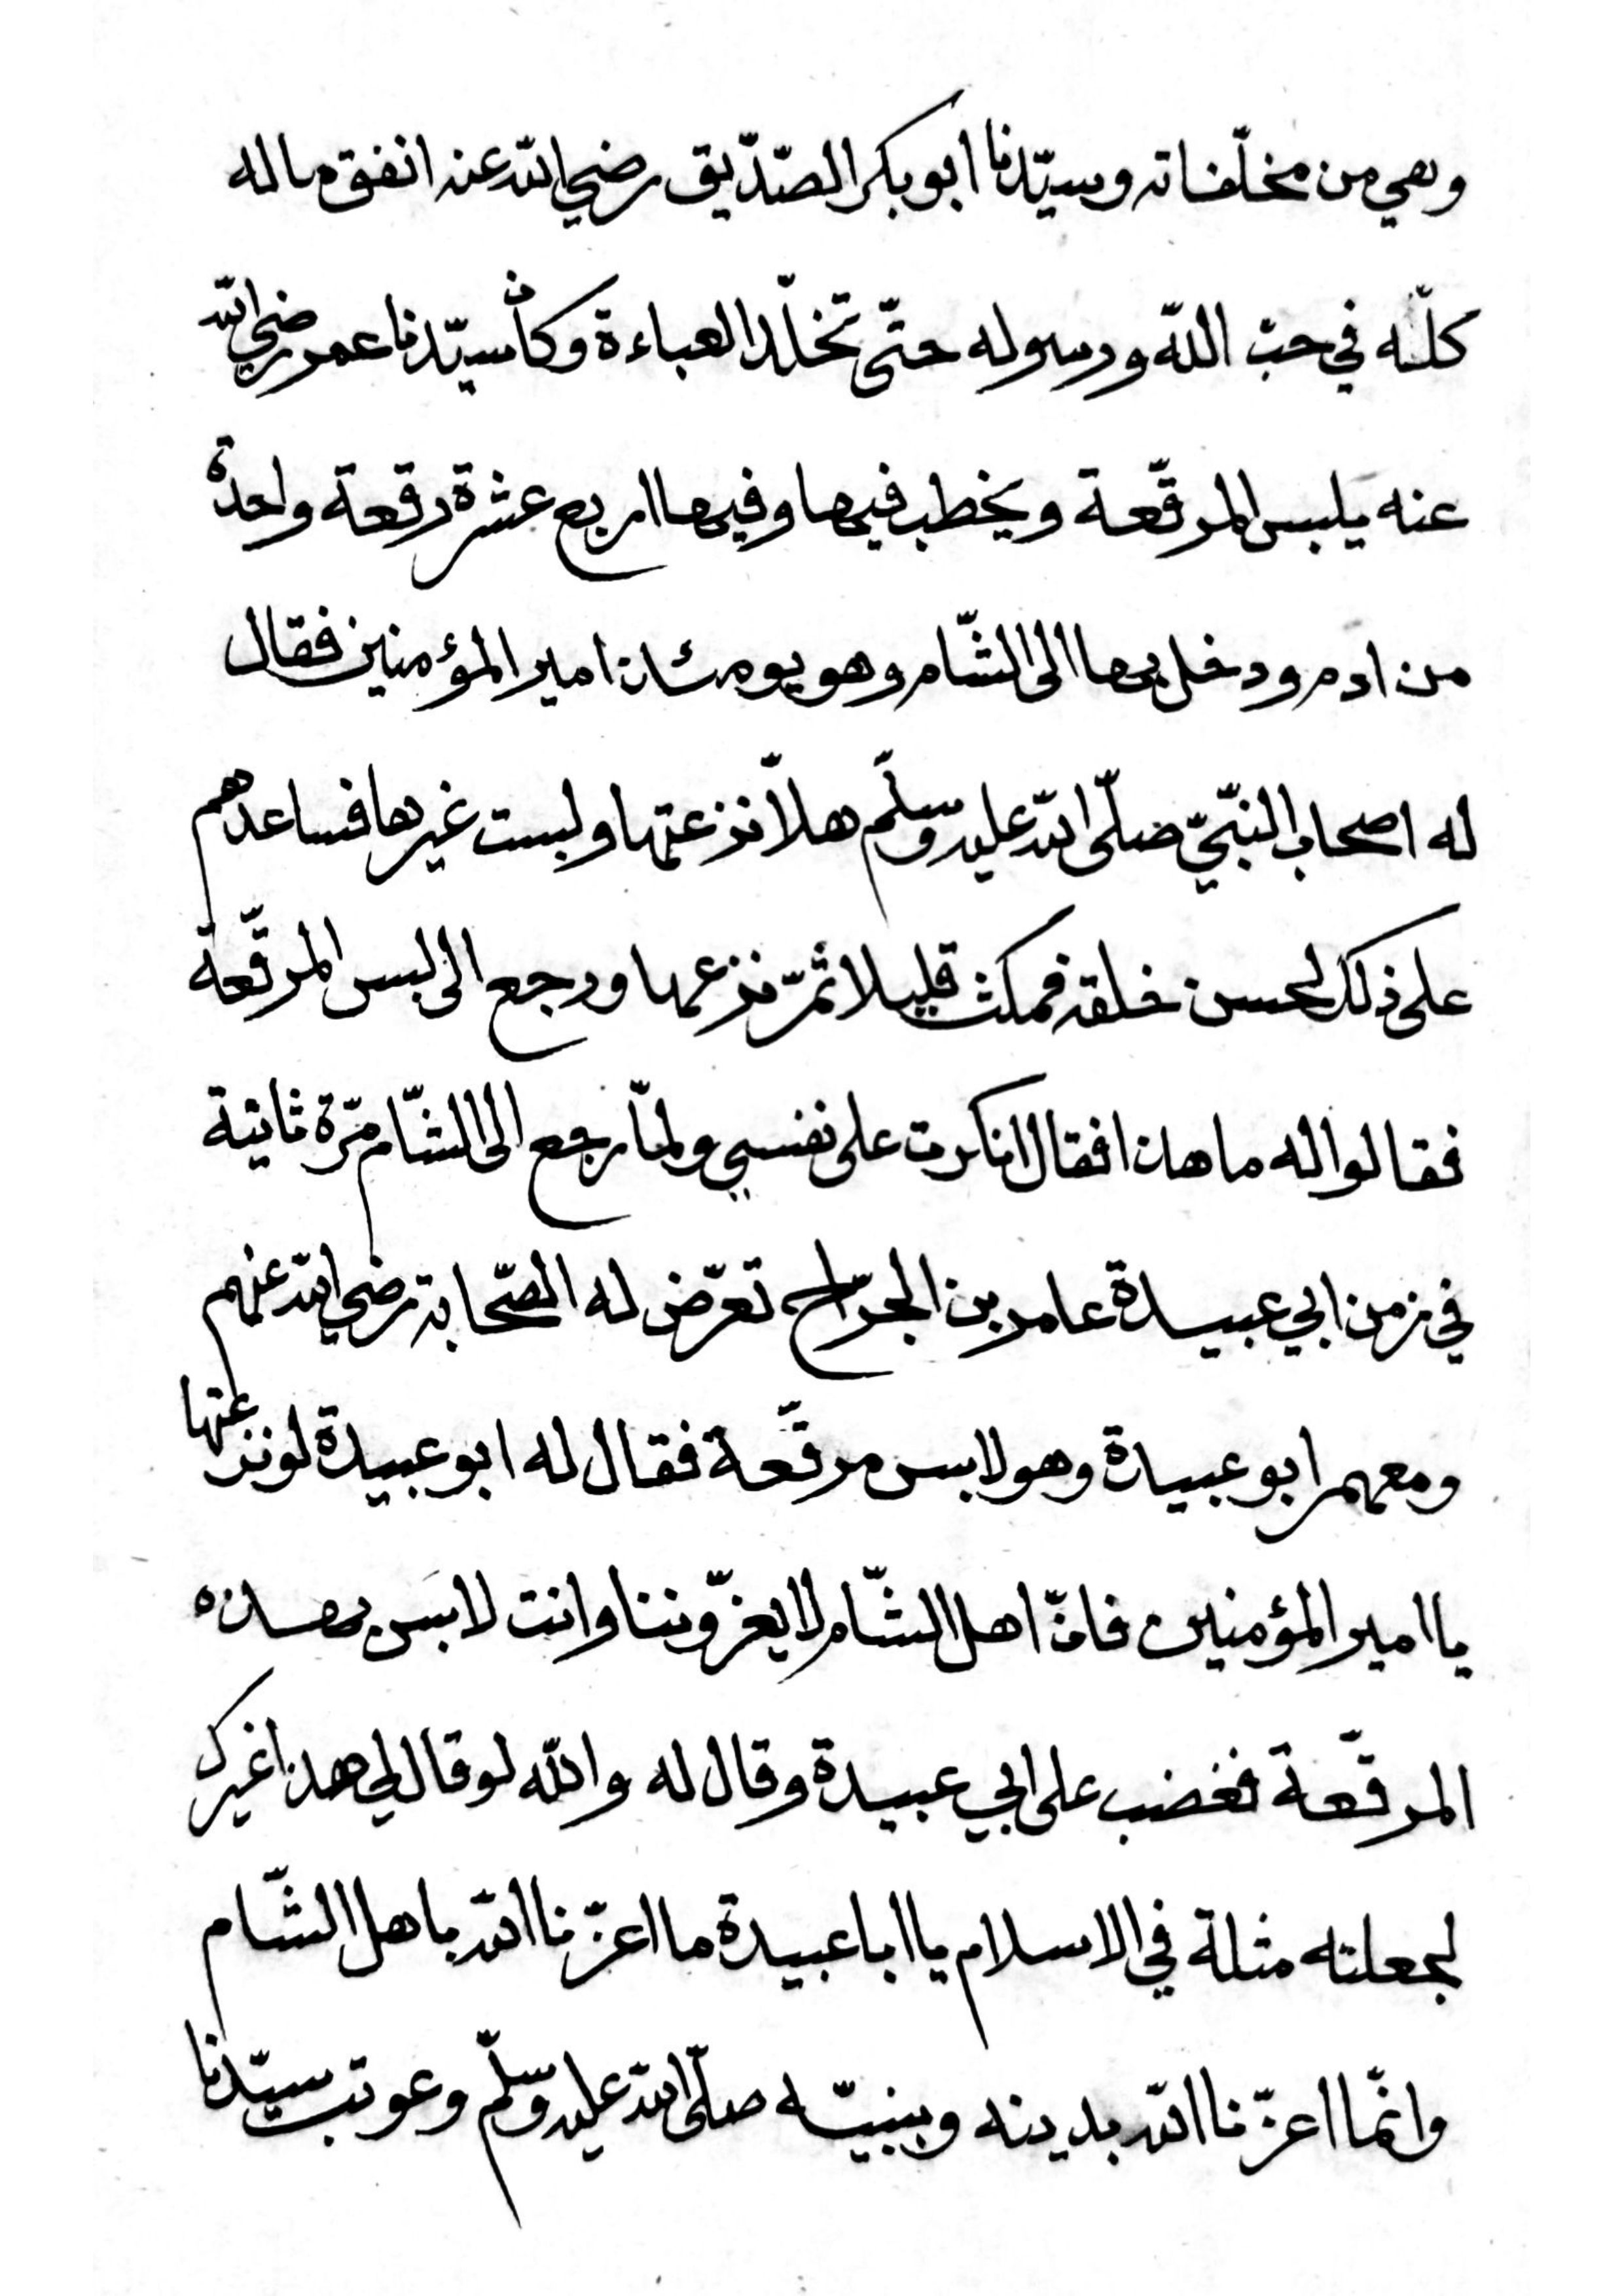 وهي من مخلّفاته وسيّدنا ابو بكر الصّدّيق رضي الله عنه انفق ماله
كلّه في حبّ الله ورسوله حتّى تخلّل العباءة وكان سيّدنا عمر رضي الله
عنه يلبس المرقّعة ويخطب فيها وفيها اربع عشرة رقعة واحدة
من ادم ودخل بها الى الشّام وهو يومئذ امير المؤمنين فقال
له اصحاب النّبيّ صلّى الله عليه وسلّم هلّا نزعتها ولبست غيرها فساعدهم
على ذلك لحسن خلقه فمكث قليلا ثمّ نزعها ورجع الى لبس المرقّعة
فقالوا له ما هذا فقال انكرت على نفسي ولمّا رجع الى الشّام مرّة ثانية
في زمن ابي عبيدة عامر بن الجرّاح تعرّض له الصّحابة رضي الله عنهم
ومعهم ابو عبيدة وهو لابس مرقّعة فقال له ابو عبيدة لو نزعتها
يا امير المؤمنين فانّ اهل الشّام لا يعزّوننا وانت لابس بهذه
المرقّعة فغضب على ابي عبيدة وقال له والله لو قال لي هذا غيرك
لجعلته مثلة في الاسلام يا ابا عبيدة ما اعزّنا الله باهل الشّام
وانّما اعزّنا الله بدينه وبنبيّه صلّى الله عليه وسلّم وعوتب سيّدنا